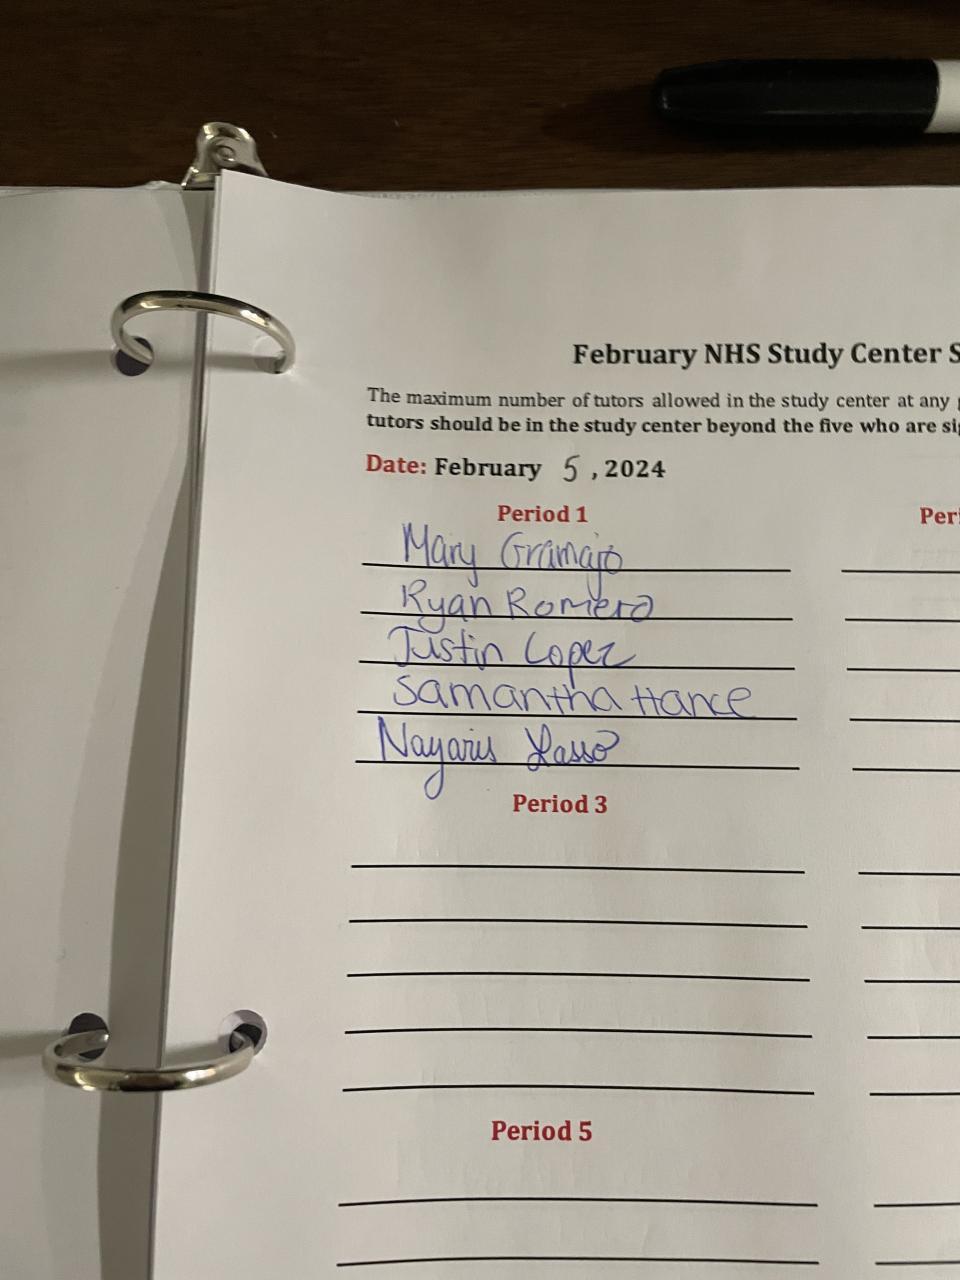 February NHS Study Center S
The maximum number of tutors allowed in the study center at any
tutors should be in the study center beyond the five who are si
Date: February 5, 2024
Period 1
Peri
Mary Gramajo
Ryan Romero
Justin Lopez
Samantha Hance
Nayaris Lasso
Period 3
Period 5